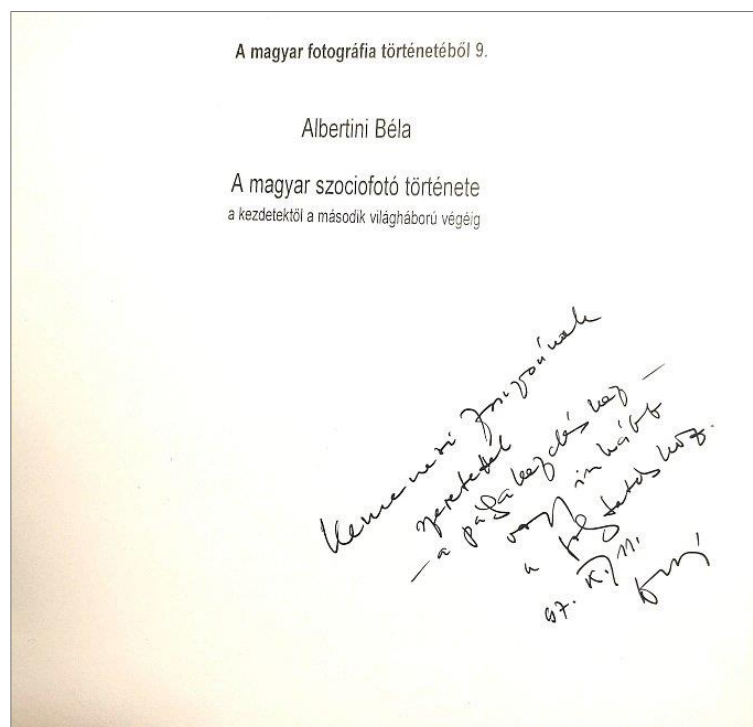 A magyar fotográfia történetéből 9.
Albertini Béla
A magyar szociofotó története
a kezdetektől a második világháború végéig
Kemenesi Zsuzsának
szeretettel
– a pályakezdéshez –
vagy inkább
a folytatáshoz.
97. X. 11.